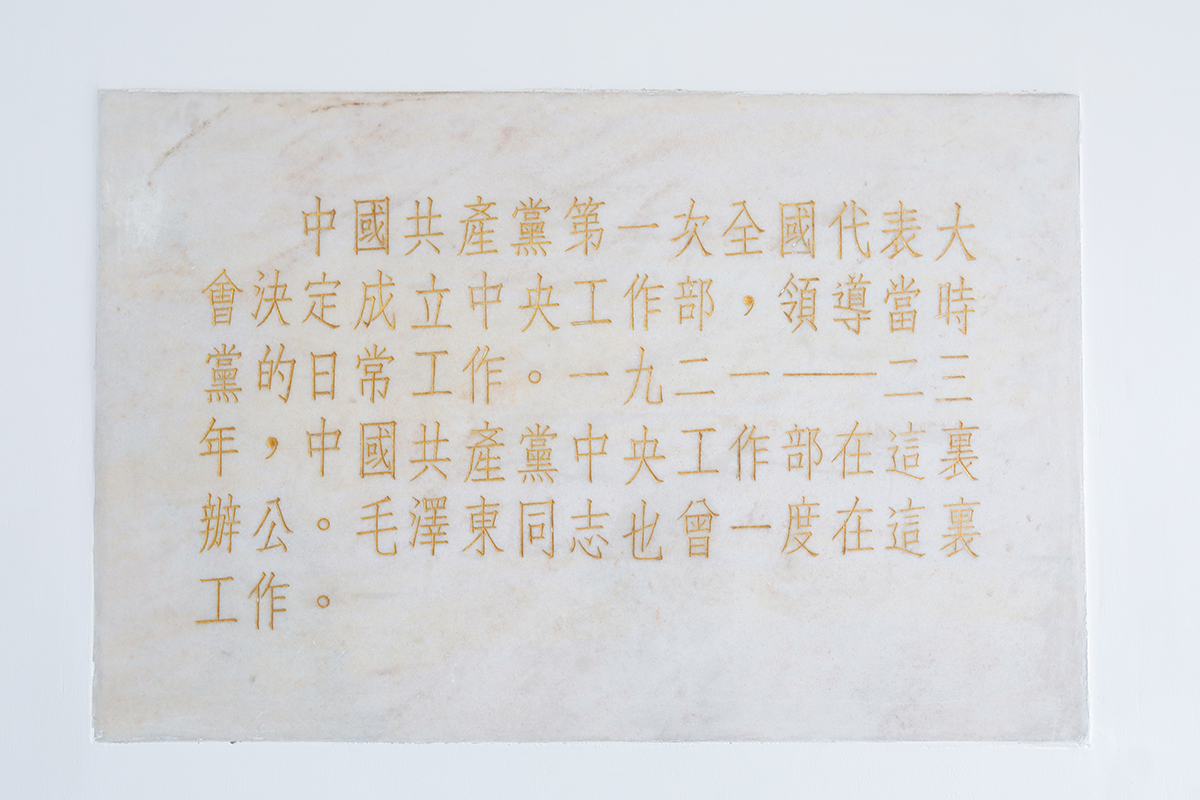 中國共產黨第一次全國代表大
會決定成立中央工作部，領導當時
黨的日常工作。一九二一——二三
年，中國共產黨中央工作部在這裏
辦公。毛澤東同志也曾一度在這裏
工作。